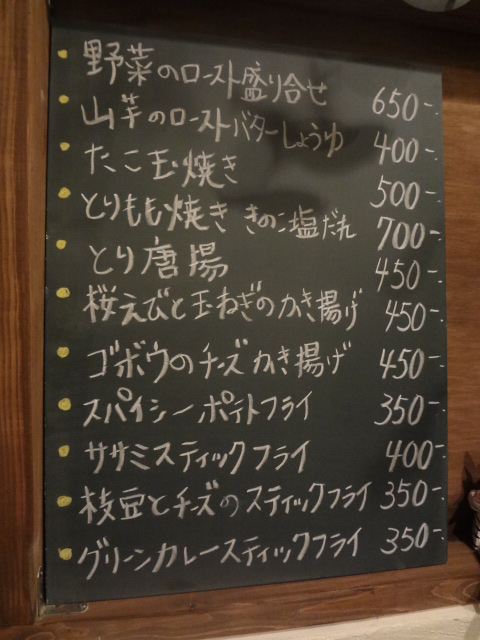 野菜のロースト盛り合せ 650-
山芋のローストバターしょうゆ 400-
たこ玉焼き 500-
とりもも焼き きのこ塩だれ 700-
とり唐揚 450-
桜えびと玉ねぎのかき揚げ 450-
ゴボウのチーズかき揚げ 450-
スパイシーポテトフライ 350-
ササミスティックフライ 400-
枝豆とチーズのスティックフライ 350-
グリーンカレースティックフライ 350-